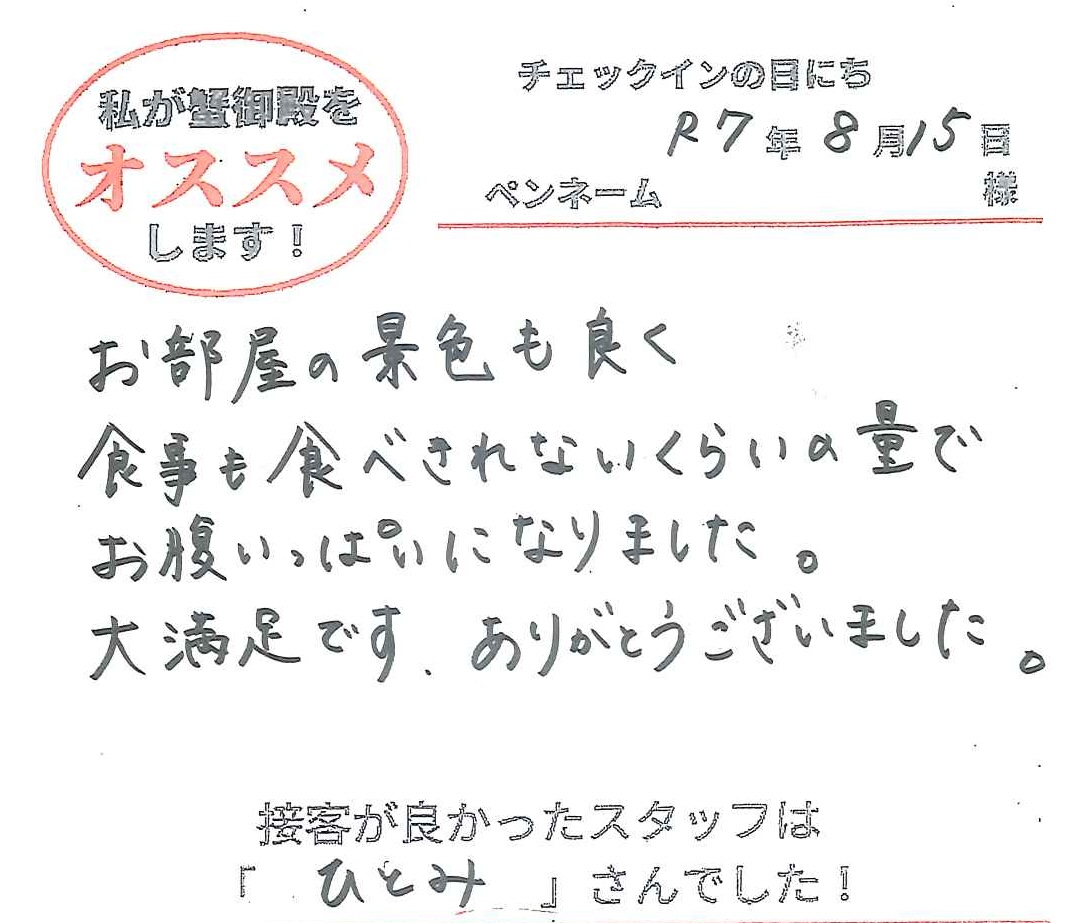 私が蟹御殿を
オススメ
します!
チェックインの日にち
R7年8月15日
ペンネーム 様
お部屋の景色も良く
食事も食べきれないくらいの量で
お腹いっぱいになりました。
大満足です、ありがとうございました。
接客が良かったスタッフは
「 ひとみ 」さんでした!